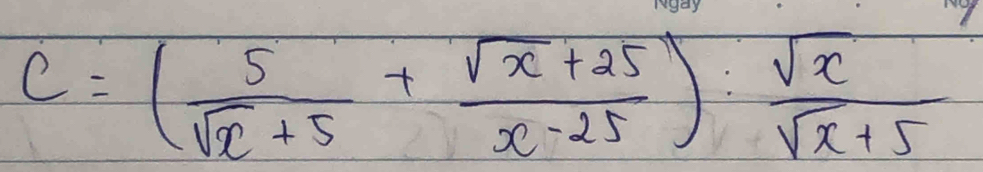 Ngày
C = (5/(√x + 5) + (√x + 25)/(x - 25)) : √x/(√x + 5)